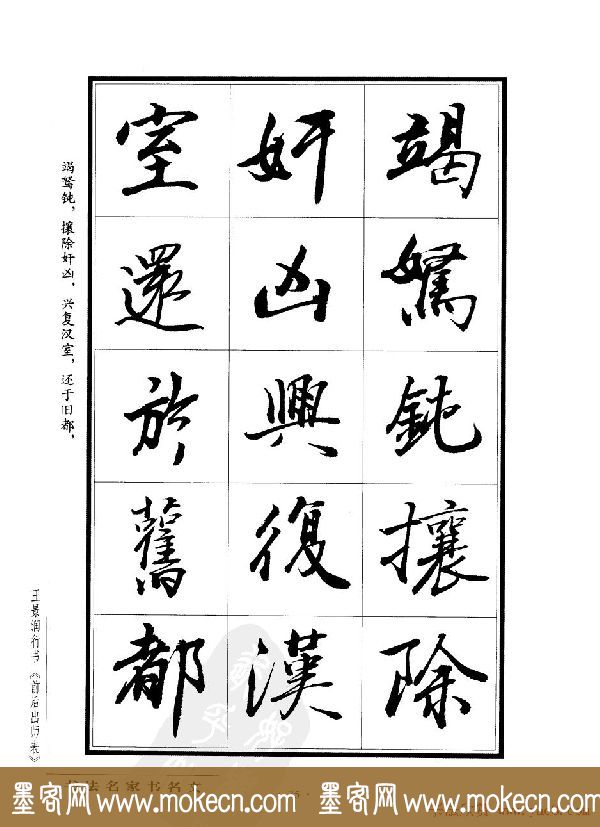 竭駑鈍攘除
奸凶興復漢
室還於舊都
竭驽钝，攘除奸凶，兴复汉室，还于旧都，
王景润行书《前后出师表》
书法名家书名文
墨客网 www.mokecn.com 墨客网 www.mokecn.com